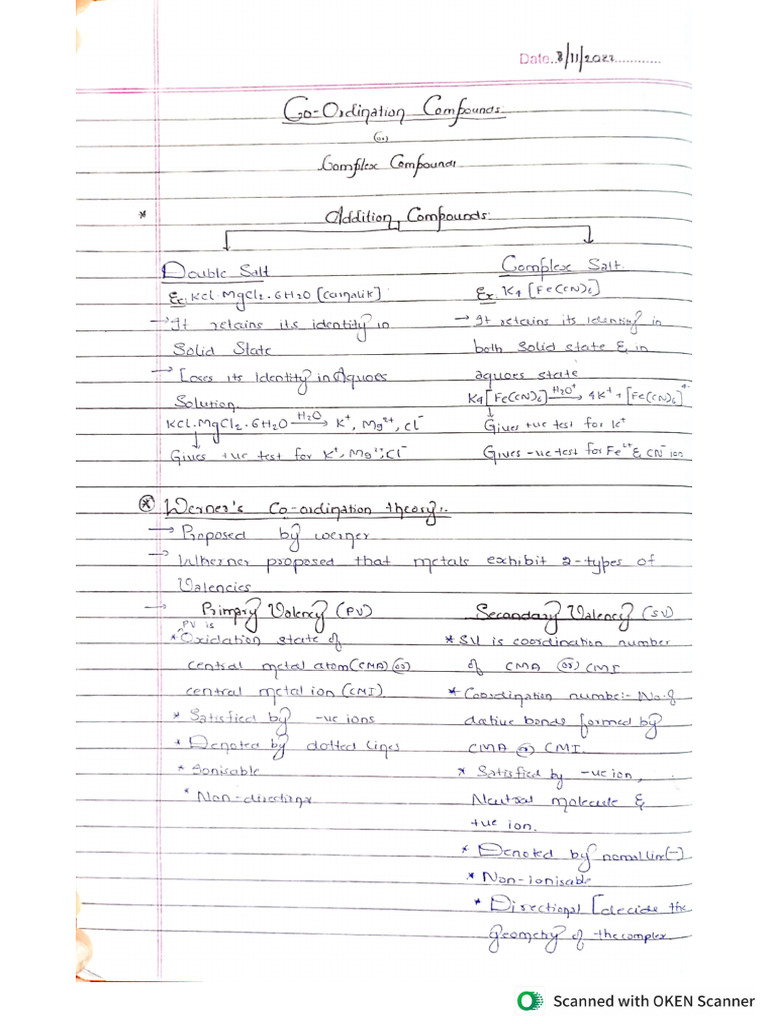 Date..8/11/2023............
Co-Ordination Compounds.
(or)
Complex Compounds
* Addition Compounds.
Double Salt
Ex: KCl·MgCl2·6H2O [Carnalik]
→ It retains its identity in
Solid State
→ Loses its Identity in Aquoes
Solution.
KCl·MgCl2·6H2O —H2O→ K⁺, Mg²⁺, Cl⁻
Gives +ve test for K⁺, Mg²⁺, Cl⁻
Complex Salt.
Ex: K4[Fe(CN)6]
→ It retains its Identity in
both Solid state & in
aquoes state
K4[Fe(CN)6] —H2O⁺→ 4K⁺ + [Fe(CN)6]⁴⁻
Gives +ve test for K⁺
Gives -ve test for Fe²⁺ & CN⁻ ion
* Werner's Co-ordination theory:.
→ Proposed by werner
→ Wherner proposed that metals exhibit 2-types of
Valencies
→ Primary Valency (PV)
* PV is Oxidation state of
central metal atom (CMA) (or)
central metal ion (CMI)
* Satisfied by -ve ions
* Denoted by dotted lines
* Ionisable
* Non-directional
Secondary Valency (SV)
* SV is coordination number
of CMA (or) CMI
* Coordination number:- No.of
dative bonds formed by
CMA (or) CMI.
* Satisfied by -ve ion,
Neutral molecule &
+ve ion.
* Denoted by normal line(-)
* Non-ionisable
* Directional [decide the
geometry of the complex
Scanned with OKEN Scanner